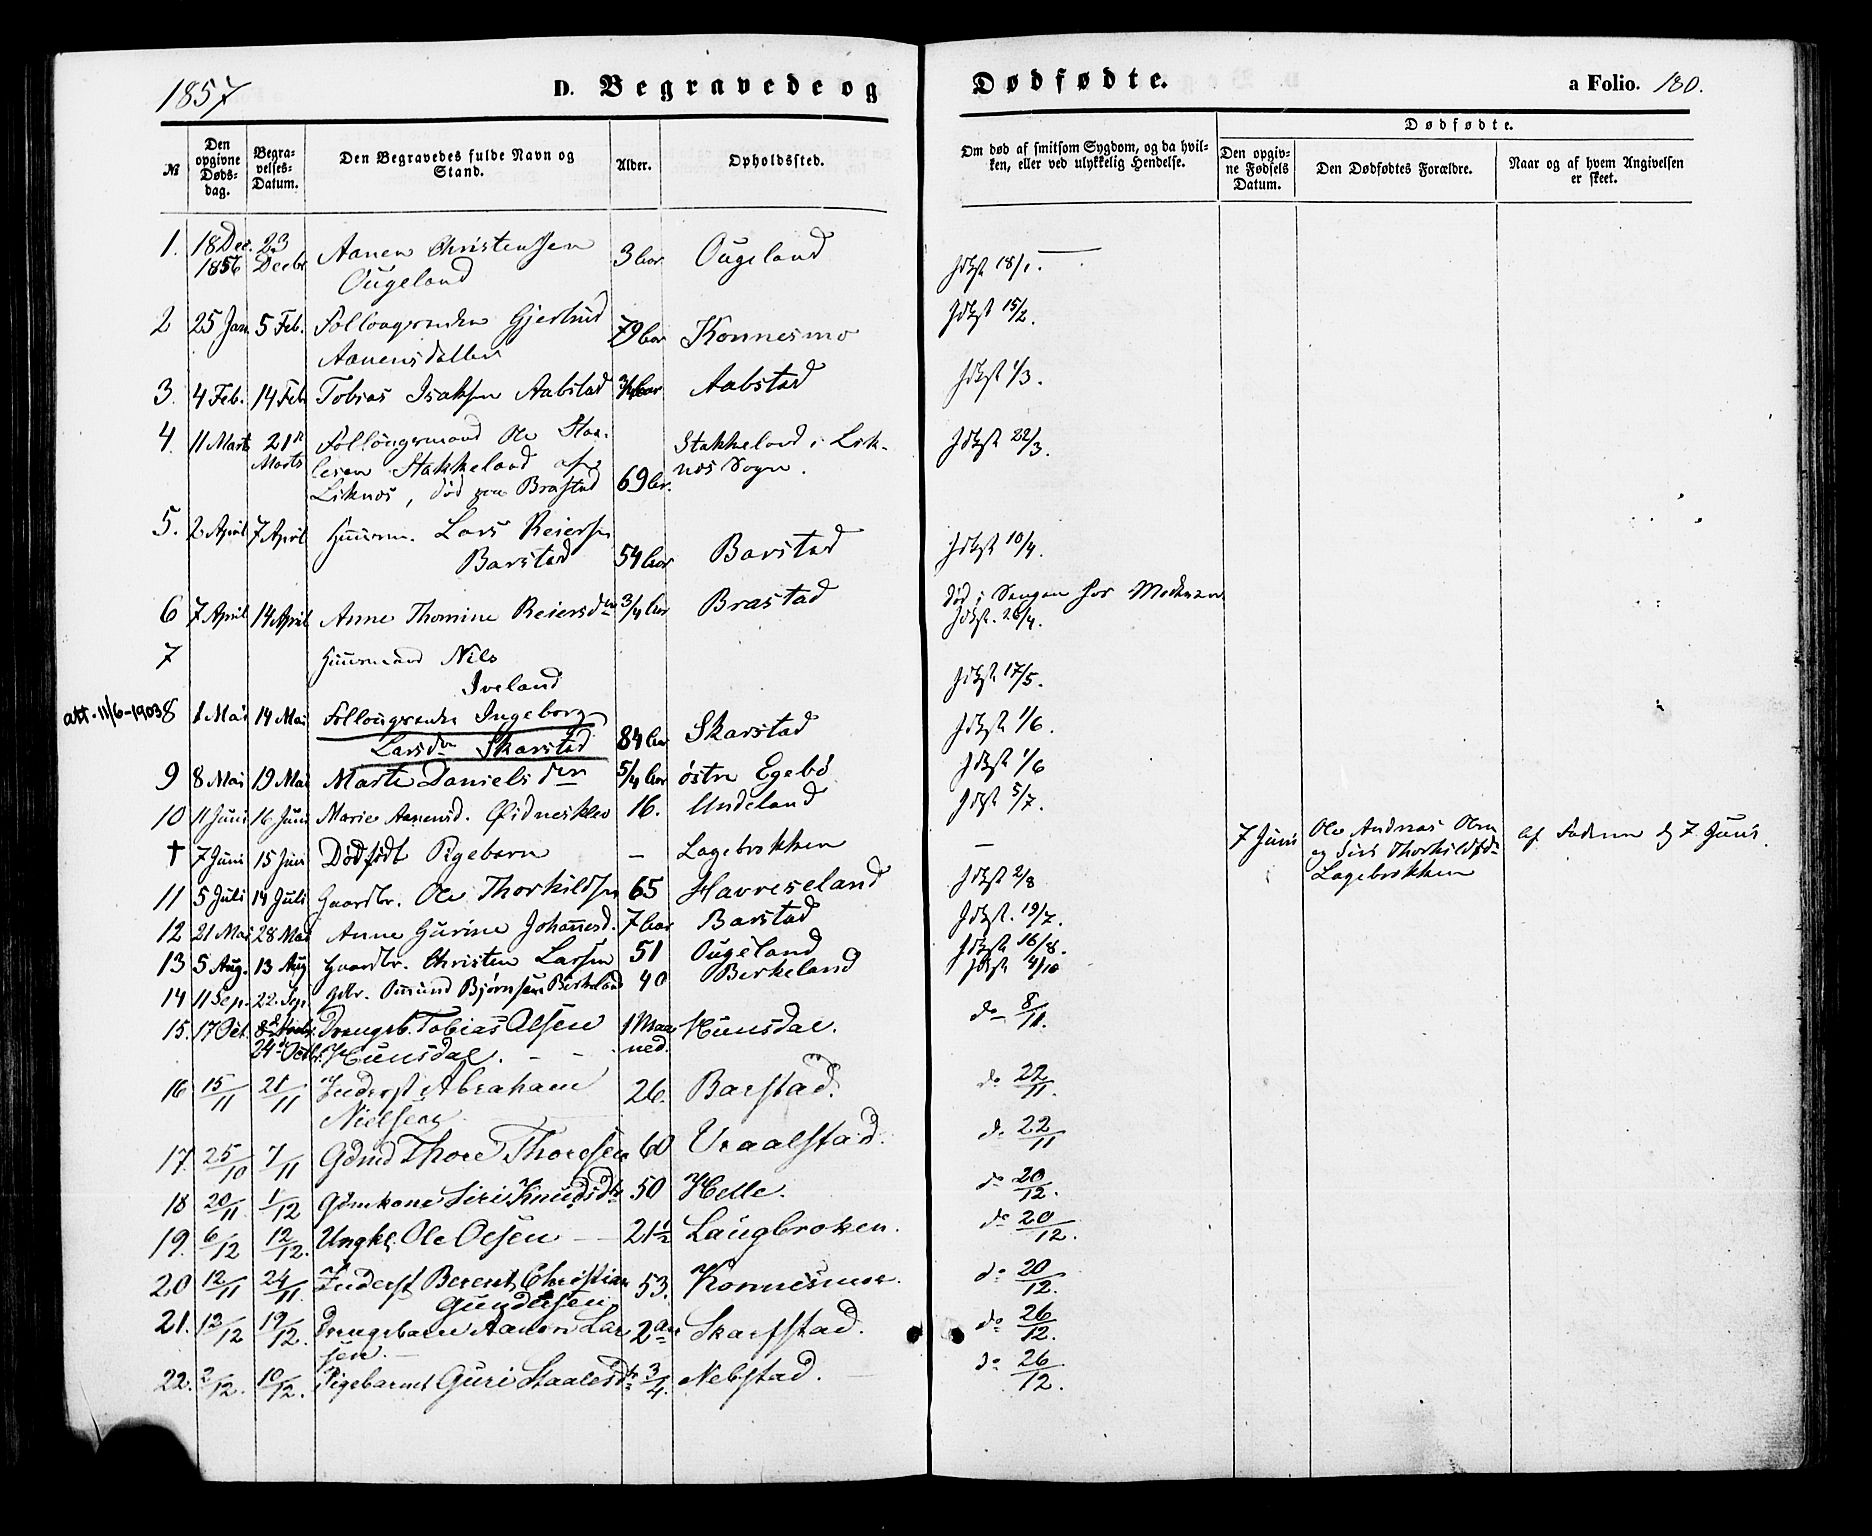 1857 D. Begravede og Dødfødte. a Folio. 180.
№ Den opgivne Døds-dag. Begra-velses-Datum. Den Begravedes fulde Navn og Stand. Alder. Opholdssted. Om død af smitsom Sygdom, og da hvil-ken, eller ved ulykkelig Hendelse. Dødfødte. Den opgiv-ne Fødsels Datum. Den Dødfødtes Forældre. Naar og af hvem Angivelsen er skeet.
1. 18 Dec. 23 Aanen Christensen 3 Ougeland
1856 Decbr Ougeland 18/1.
2 25 Jan. 5 Feb. Follougsenden Gjertrud 79 Konnesmo 15/2.
Aanensdatter
3. 4 Feb. 14 Feb Tobias Isaksen Aabstad 3/4 Aabstad 1/3.
4. 11 Marts 21n Follougsmand Ole Staa- Stakkeland i Lik- 22/3.
Marts lesen Stakkeland af nes Sogn.
Liknes, død paa Brastad 69
5. 2 April 7 April Huusm. Lars Reiersen
Barstad 54 Barstad 10/4.
6 7 April 14 April Anne Thomine Reiersdn 3/4 Brastad død i Sengen hos Moderen
26/4.
7 Huusmand Nils
Iveland 17/5.
att. 11/6-1903 8 1 Mai 14 Mai Follougsenden Ingeborg
Larsdn Skarstad 84 Skarstad 1/6.
9 8 Mai 19 Mai Marte Danielsdn 5/4 østre Egebø 1/6
10 11 Juni 16 Juni Marie Aanensd. Øidnesklev 16. Undeland 5/7.
† 7 Juni 15 Juni Dødfødt Pigebarn – Lagebrokken – 7 Juni Ole Andreas Olsen af Faderen d 7 Juni.
og Siri Thorkildsd
Lagebrokken
11 5 Juli 14 Juli Gaardbr. Ole Thorkildsen 65 Havreseland 2/8
12 21 Mai 28 Mai Anne Gurine Johannesd. 7 Barstad 19/7.
13 5 Aug. 13 Aug Gaardbr. Christen Larsen 51 Ougeland 16/8.
14 11 Sep. 22. Sep. Gdbr. Omund Bjørnsen Birkeland 40 Birkeland 4/10
15. 17 Oct. Drengeb. Tobias Olsen 1 Maa- Hunsdal. do 8/11.
24 Octb. Hunsdal. ned.
16 15/11 21/11 Inderst Abraham 26. Barstad. do 22/11.
Nielsen
17. 25/10 7/11 Gdmd Thore Thoresen 60 Vraalstad. do 22/11
18 20/11 1/12 Gdmkone Siri Knudsdtr 50 Helle. do 20/12.
19. 6/12 12/12. Ungkl. Ole Olsen 21½ Laugbroken. do 20/12.
20 12/11 24/11 Inderst Berent Christian 53. Konnesmoe. do 20/12.
Gundersen
21. 12/12 19/12. Drengebarn Aanen Lar 2 aar Skarstad. do 26/12.
sen.
22. 2/12. 10/12. Pigebarnet Guri Staalesdtr 3/4. Nebstad. do 26/12.